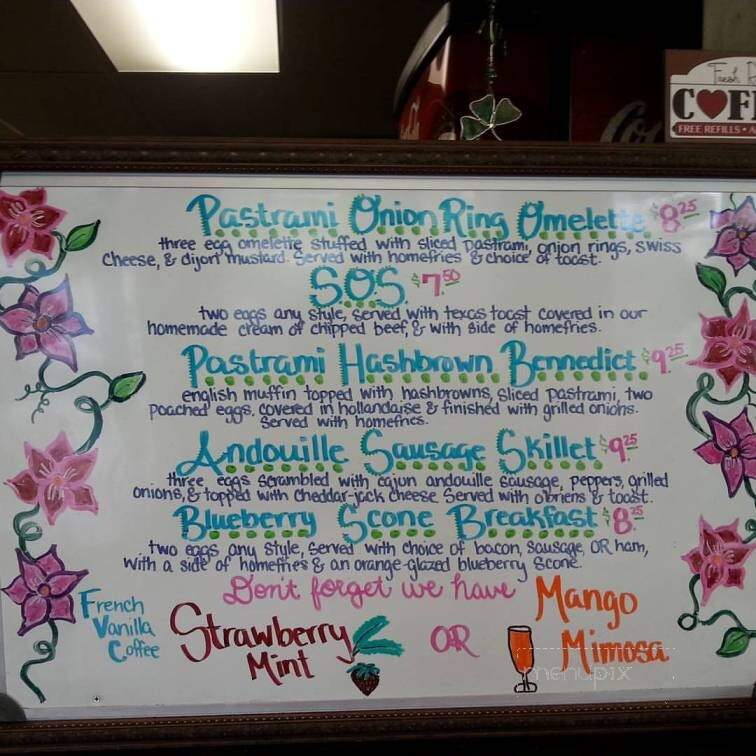 Fresh
COF
FREE REFILLS • A
Co
Pastrami Onion Ring Omelette $8.25
three egg omelette stuffed with sliced pastrami, onion rings, swiss
cheese, & dijon mustard. Served with homefries & choice of toast.
SOS $7.50
two eggs any style, served with texas toast covered in our
homemade cream of chipped beef, & with side of homefries.
Pastrami Hashbrown Bennedict $9.25
english muffin topped with hashbrowns, sliced pastrami, two
poached eggs, covered in hollandaise & finished with grilled onions.
Served with homefries.
Andouille Sausage Skillet $9.25
three eggs scrambled with cajun andouille sausage, peppers, grilled
onions, & topped with cheddar-jack cheese. Served with o'briens & toast.
Blueberry Scone Breakfast $8.25
two eggs any style, served with choice of bacon, sausage, OR ham,
with a side of homefries & an orange-glazed blueberry scone.
Don't forget we have
French
Vanilla
Coffee
Strawberry
Mint
OR
Mango
Mimosa
menupix